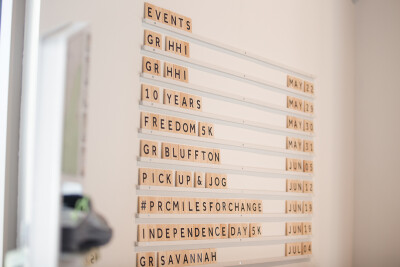 EVENTS
GR HHI MAY
GR HHI MAY
10 YEARS MAY 30
FREEDOM 5K MAY
GR BLUFFTON JUN
PICK UP & JOG JUN 12
#PRCMILESFORCHANGE JUN 19
INDEPENDENCE DAY 5K JUL 04
GR SAVANNAH